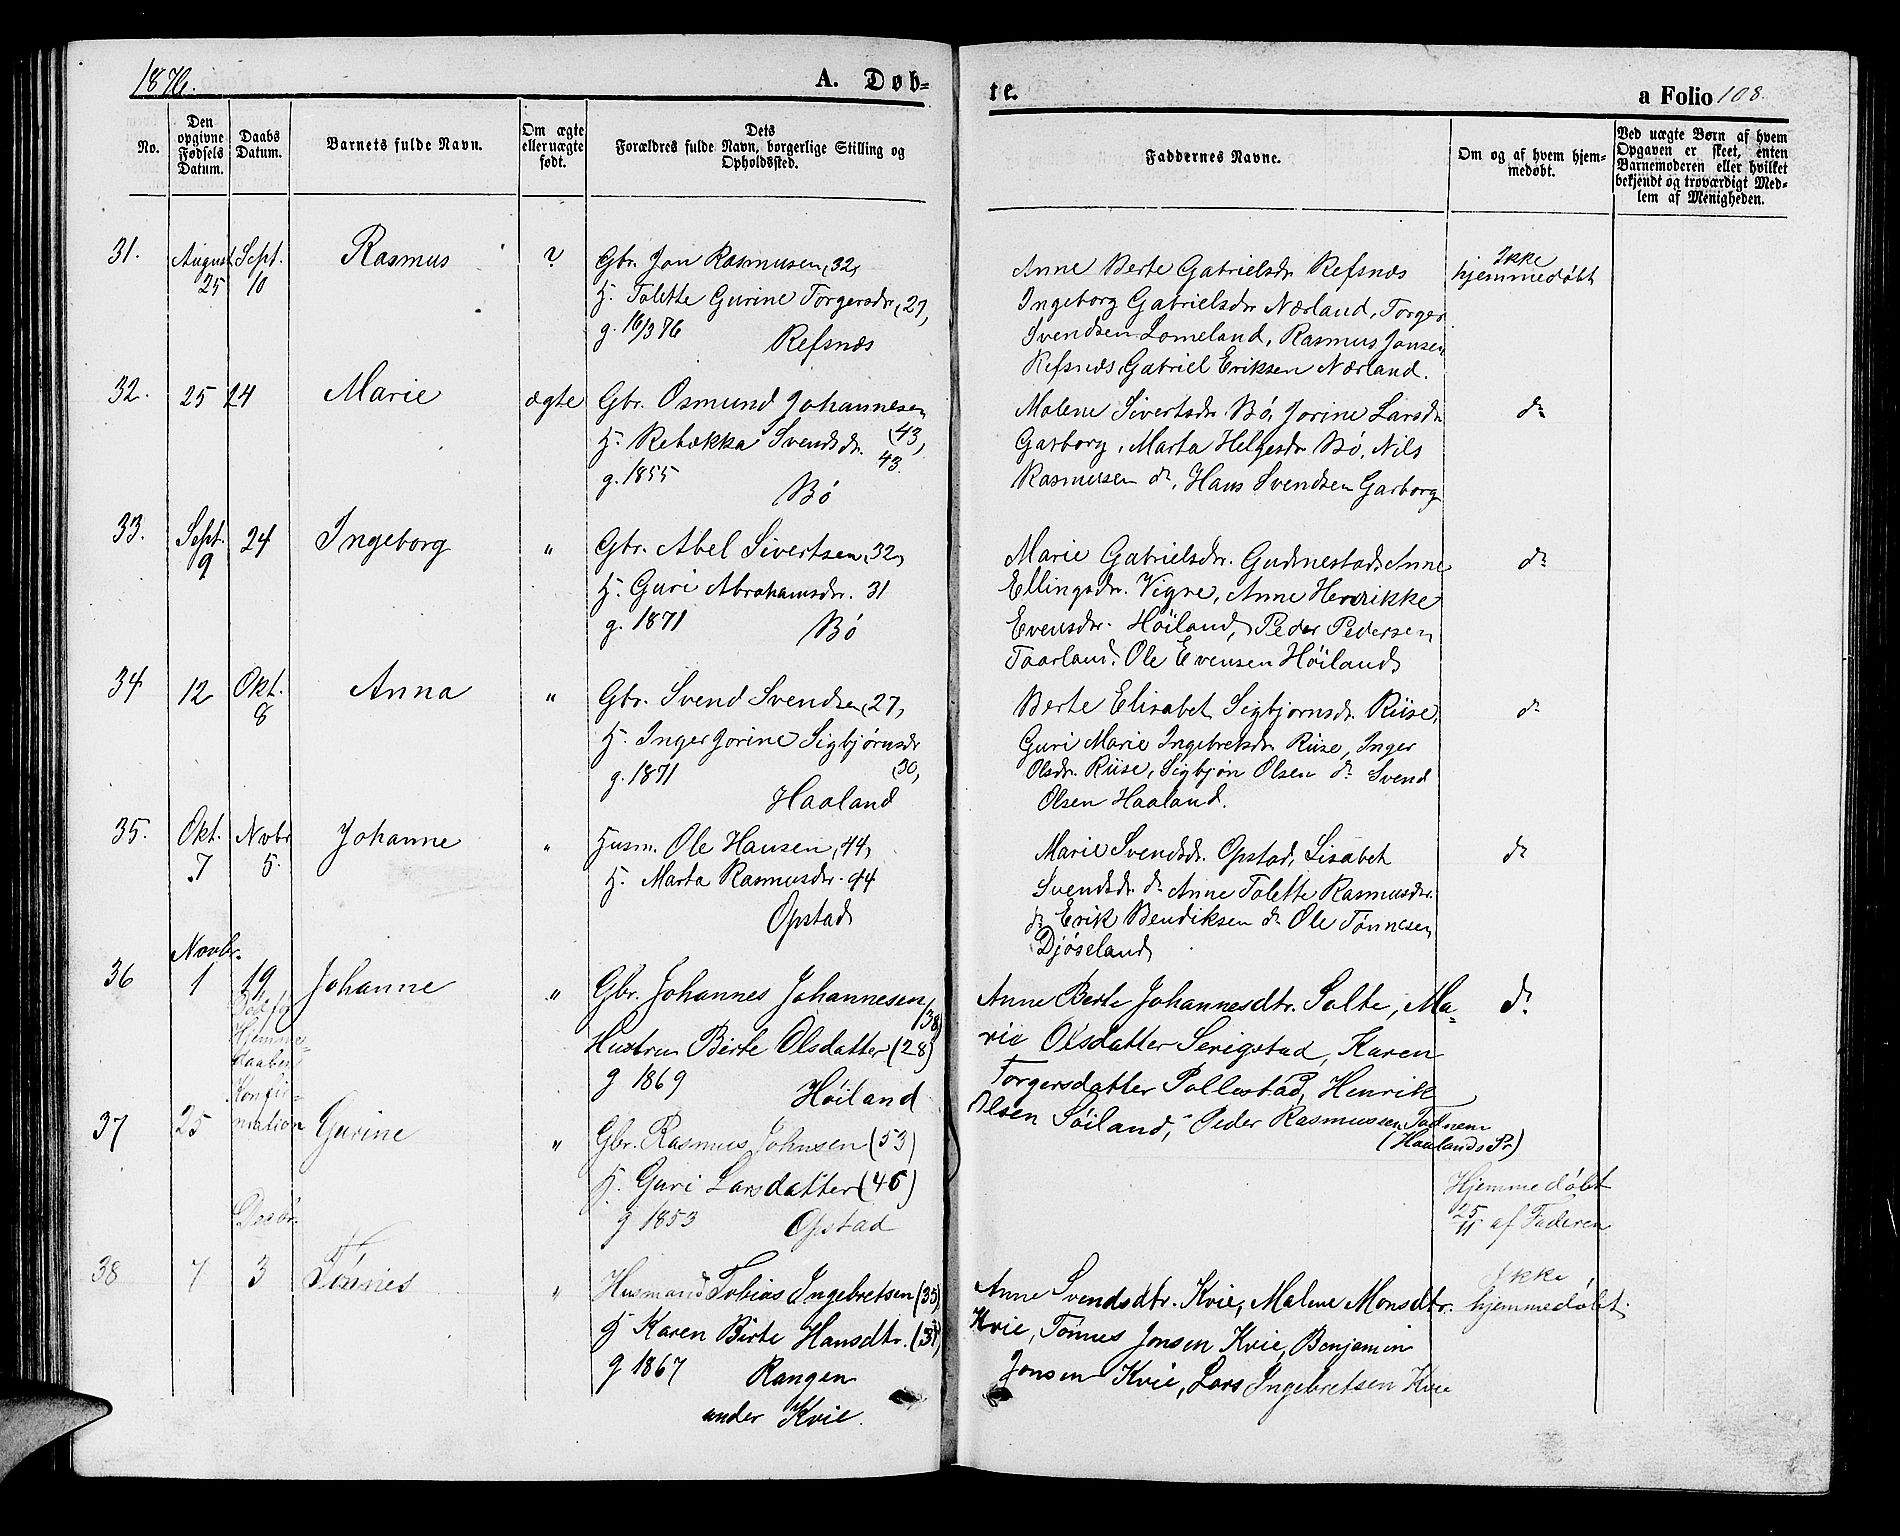 1876.
A. Døb-
te.
a Folio 108.
No.
Den opgivne Fødsels Datum.
Daabs Datum.
Barnets fulde Navn.
Om ægte eller uægte født.
Dets Forældres fulde Navn, borgerlige Stilling og Opholdssted.
Faddernes Navne.
Om og af hvem hjemmedøbt.
Ved uægte Børn af hvem Opgaven er skeet, enten Barnemoderen eller hvilket bekjendt og troværdigt Medlem af Menigheden.
31. August 25 Sept. 10 Rasmus ?
Gbr. Jon Rasmusen, 32,
H. Tolette Gurine Torgersdr, 27,
g. 16/3 76 Refsnæs
Anne Berte Gabrielsdr. Refsnæs
Ingeborg Gabrielsdr Nærland, Torger
Svendsen Lomeland, Rasmus Jonsen
Refsnæs, Gabriel Eriksen Nærland.
Ikke
hjemmedøbt
32. 25 24 Marie ægte
Gbr. Osmund Johannesen
(43,
H. Rebekka Svendsdr. 43.
g. 1855
Bø
Malene Sivertsdr. Bø, Jorine Larsdr
Garborg, Marta Helgesdr Bø, Nils
Rasmusen do, Hans Svendsen Garborg
do
33. Sept. 9 24 Ingeborg "
Gbr. Abel Sivertsen, 32,
H. Guri Abrahamsdr. 31
g. 1871 Bø
Marie Gabrielsdr. Gudmestad, Anne
Ellingsdr. Vigre, Anne Henrikke
Evensdr. Höiland, Peder Pedersen
Taarland, Ole Evensen Höiland
do
34 12 Okt. 8 Anna "
Gbr. Svend Svendsen, 27,
H. Inger Jorine Sigbjørnsdr
g. 1871 (30,
Haaland
Berte Elisabet Sigbjornsdr. Riise,
Guri Marie Ingebretsdr Riise, Inger
Olsdr. Riise, Sigbjøn Olsen do Svend
Olsen Haaland.
do
35. Okt. 7 Novbr 5. Johanne "
Husm. Ole Hansen, 44,
H. Marta Rasmusdr. 44
Opstad
Marie Svendsdr. Opstad, Lisabet
Svendsdr. do Anne Tolette Rasmusdr.
do Erik Bendiksen do Ole Tønnesen
Djøseland
do
Novbr.
36 1 19 Johanne "
Gbr. Johannes Johannesen
(38)
Hustru Birte Olsdatter (28)
g 1869 Höiland
Anne Berte Johannesdtr. Salte, Ma-
rie Olsdatter Serigstad, Karen
Torgersdatter Pollestad, Henrik
Olsen Söiland, Peder Rasmussen Tadnem
(Haalands Pr)
do
Hjemme-
daaben
Konfir-
mation
37 25 Gurine "
Gbr. Rasmus Johnsen (53)
H. Guri Larsdatter (46)
g 1853 Opstad
Hjemmedøbt
25/11 af Faderen
Decbr.
38 7 3 Tönnes "
Husmand Tobias Ingebretsen (35)
H Karen Birte Hansdtr. (37)
g 1867 Rangen
under Kvie.
Anne Svendsdtr. Kvie, Malene Monsdtr.
Kvie, Tönnes Jonsen Kvie, Benjamin
Jonsen Kvie, Lars Ingebretsen Kvie
Ikke
hjemmedøbt.